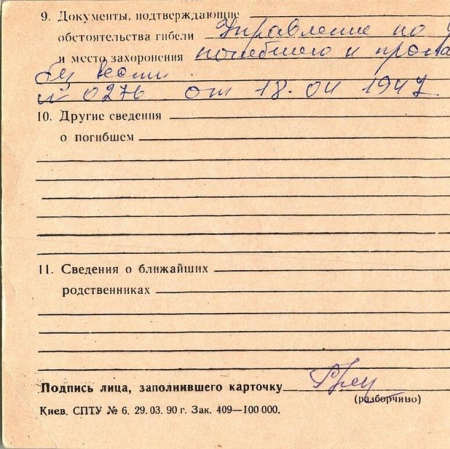 9. Документы, подтверждающие
обстоятельства гибели Управление по
и место захоронения погибшего и пропа
без вести
№ 0276 от 18.04 1947
10. Другие сведения
о погибшем
11. Сведения о ближайших
родственниках
Подпись лица, заполнившего карточку
(разборчиво)
Киев. СПТУ № 6. 29. 03. 90 г. Зак. 409—100 000.